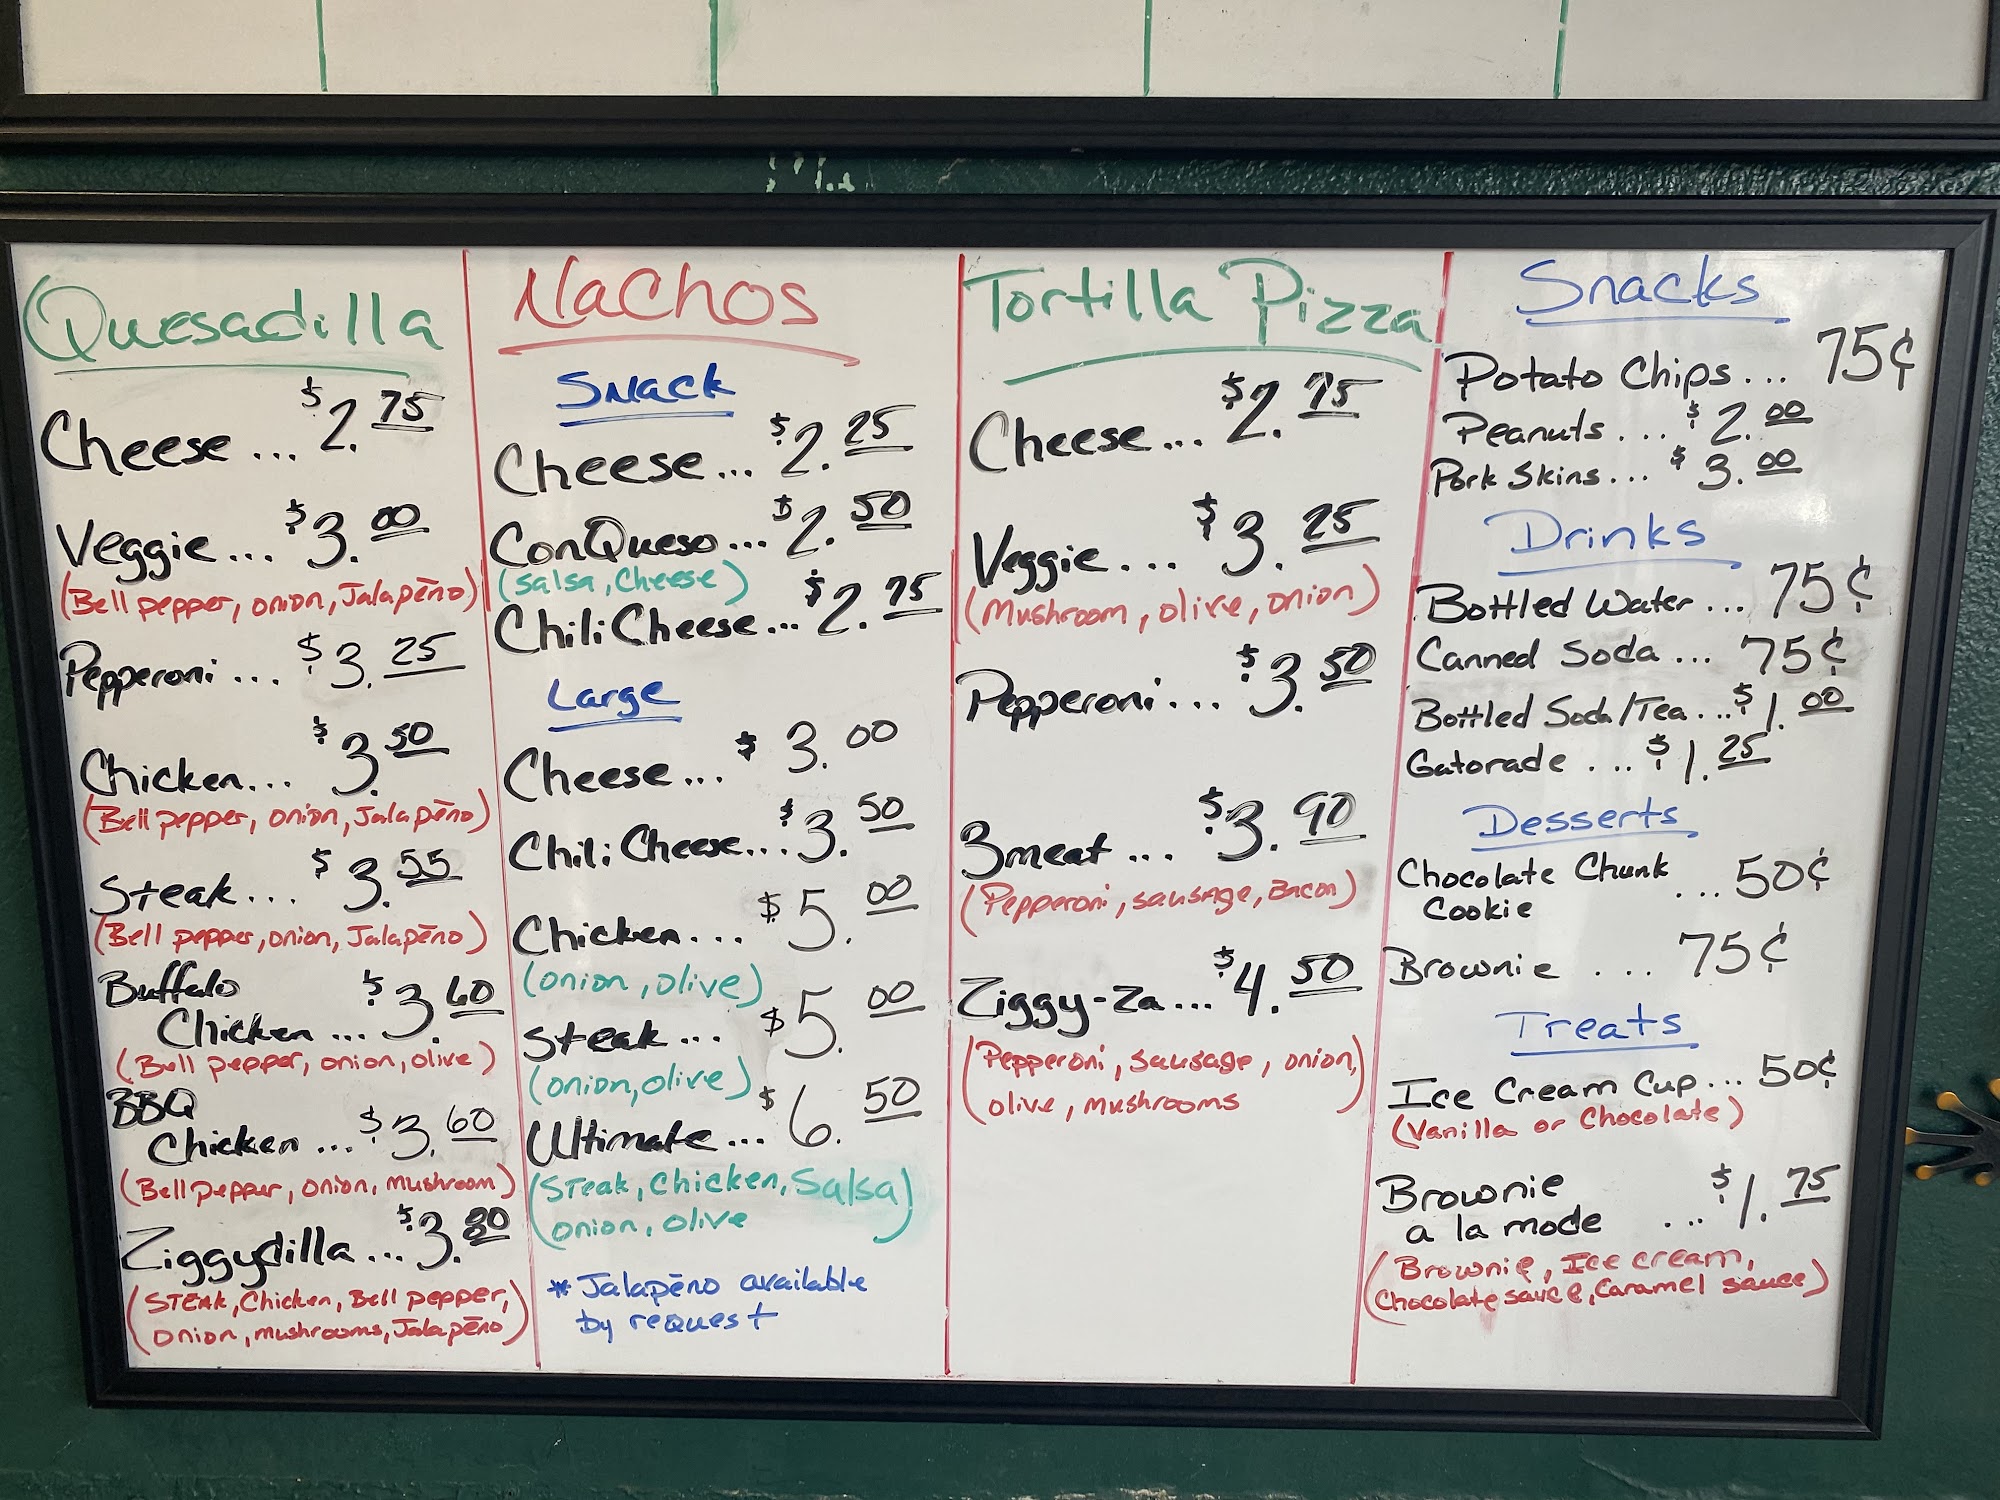 Quesadilla
Cheese ... $2.75
Veggie ... $3.00
(Bell pepper, onion, Jalapēno)
Pepperoni ... $3.25
Chicken... $3.50
(Bell pepper, onion, Jalapēno)
Steak... $3.55
(Bell pepper, onion, Jalapēno)
Buffalo
Chicken ... $3.60
(Bell pepper, onion, olive)
BBQ
Chicken ... $3.60
(Bell pepper, onion, mushroom)
Ziggydilla ... $3.80
(STEAK, Chicken, Bell pepper,
onion, mushrooms, Jalapēno)
Nachos
Snack
Cheese... $2.25
ConQueso... $2.50
(salsa, Cheese)
Chili Cheese... $2.75
Large
Cheese... $3.00
Chili Cheese... $3.50
Chicken... $5.00
(onion, olive)
Steak... $5.00
(onion, olive)
Ultimate... $6.50
(Steak, Chicken, Salsa)
onion, olive
* Jalapēno available
by request
Tortilla Pizza
Cheese... $2.75
Veggie ... $3.25
(Mushroom, olive, onion)
Pepperoni... $3.50
3meat ... $3.90
(Pepperoni, sausage, Bacon)
Ziggy-za ... $4.50
(Pepperoni, sausage, onion,
olive, mushrooms)
Snacks
Potato Chips... 75¢
Peanuts... $2.00
Pork Skins... $3.00
Drinks
Bottled Water... 75¢
Canned Soda ... 75¢
Bottled Soda/Tea...$1.00
Gatorade ... $1.25
Desserts
Chocolate Chunk
Cookie ... 50¢
Brownie ... 75¢
Treats
Ice Cream Cup... 50¢
(Vanilla or Chocolate)
Brownie
a la mode ... $1.75
(Brownie, Ice cream,
Chocolate sauce, Caramel sauce)